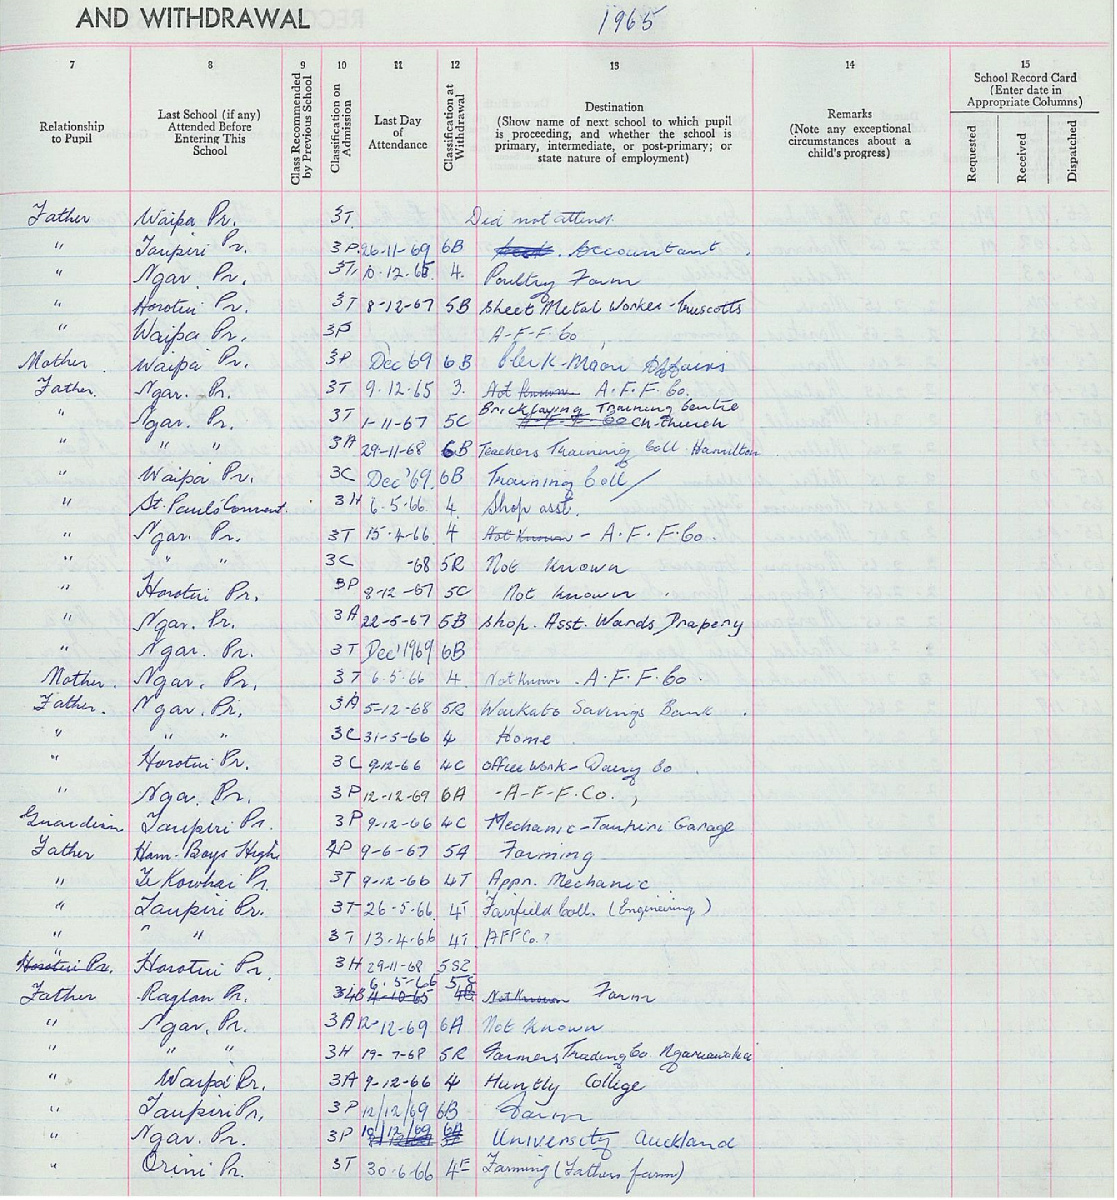 AND WITHDRAWAL 1965
7 8 9 10 11 12 13 14 15
Relationship to Pupil
Last School (if any) Attended Before Entering This School
Class Recommended by Previous School
Classification on Admission
Last Day of Attendance
Classification at Withdrawal
Destination
(Show name of next school to which pupil is proceeding, and whether the school is primary, intermediate, or post-primary; or state nature of employment)
Remarks
(Note any exceptional circumstances about a child's progress)
School Record Card
(Enter date in Appropriate Columns)
Requested Received Dispatched
Father Waipa Pr. 3T. Did not attend
" Taupiri Pr. 3P. 26-11-69 6B Accountant.
" Ngar. Pr. 3T. 10.12.65 4. Poultry Farm
" Horotiu Pr. 3T 8-12-67 5B Sheet Metal Worker-Truscotts
" Waipa Pr. 3P A-F-F Co
Mother Waipa Pr. 3P Dec 69 6B Clerk-Maori Affairs
Father. Ngar. Pr. 3T 9.12.65 3. Not Known A.F.F. Co.
" Ngar. Pr. 3T 1-11-67 5C Bricklaying Training Centre A-F-F Co Ch-church
" " " 3A 29-11-68 6B Teachers Training Coll. Hamilton
" Waipa Pr. 3C Dec '69 6B Training Coll
" St. Paul's Convent. 3H 6.5.66. 4. Shop asst.
" Ngar. Pr. 3T 15.4.66 4 Not Known - A.F.F.Co.
" " " 3C -68 5R Not Known
" Horotiu Pr. 3P 8-12-67 5C Not known
" Ngar. Pr. 3A 22-5-67 5B Shop. Asst. Wards Drapery
" Ngar. Pr. 3T Dec 1969 6B
Mother. Ngar. Pr. 3T 6.5.66 4. Not Known - A.F.F. Co.
Father. Ngar. Pr. 3A 5-12-68 5R Waikato Savings Bank.
" " " 3C 31-5-66 4 Home
" Horotiu Pr. 3C 9-12-66 4C Office Work - Dairy Co
" Ngar. Pr. 3P 12-12-69 6A -A-F-F.Co.
Guardian Taupiri Pr. 3P 9-12-66 4C Mechanic-Taupiri Garage
Father Ham-Boys High 4P 9-6-67 5A Farming
" Te Kowhai Pr. 3T 9-12-66 4T Appn. Mechanic
" Taupiri Pr. 3T 26-5-66 4T Fairfield Coll. (Engineering)
" " " 3T 13.4.66 4T AFFCo.?
" Horotiu Pr. Horotiu Pr. 3H 29-11-68 5S2
Father Raglan Pr. 6.5-66 Not Known Farm
" Ngar. Pr. 3A 12-12-69 6A Not Known
" " " 3H 19-7-68 5R Farmers Trading Co. Ngaruawahia
" Waipa Pr. 3A 9-12-66 4 Huntly College
" Taupiri Pr. 3P 12/12/69 6B Farm
" Ngar. Pr. 3P University Auckland
" Orini Pr. 3T 30-6-66 Farming (Fathers farm)